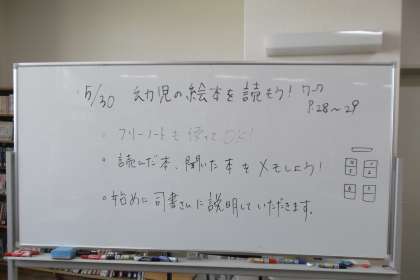 5/30 幼児の絵本を読もう! ワーク
P.28〜29
• フリーノートも使ってOK!
• 読んだ本、聞いた本をメモしよう!
• 始めに司書さんに説明していただきます。